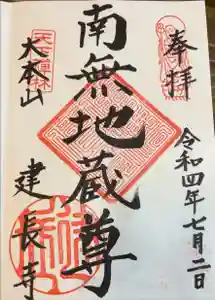 奉拝
令和四年七月二日
南無地蔵尊
天下禅林
大本山
建長寺